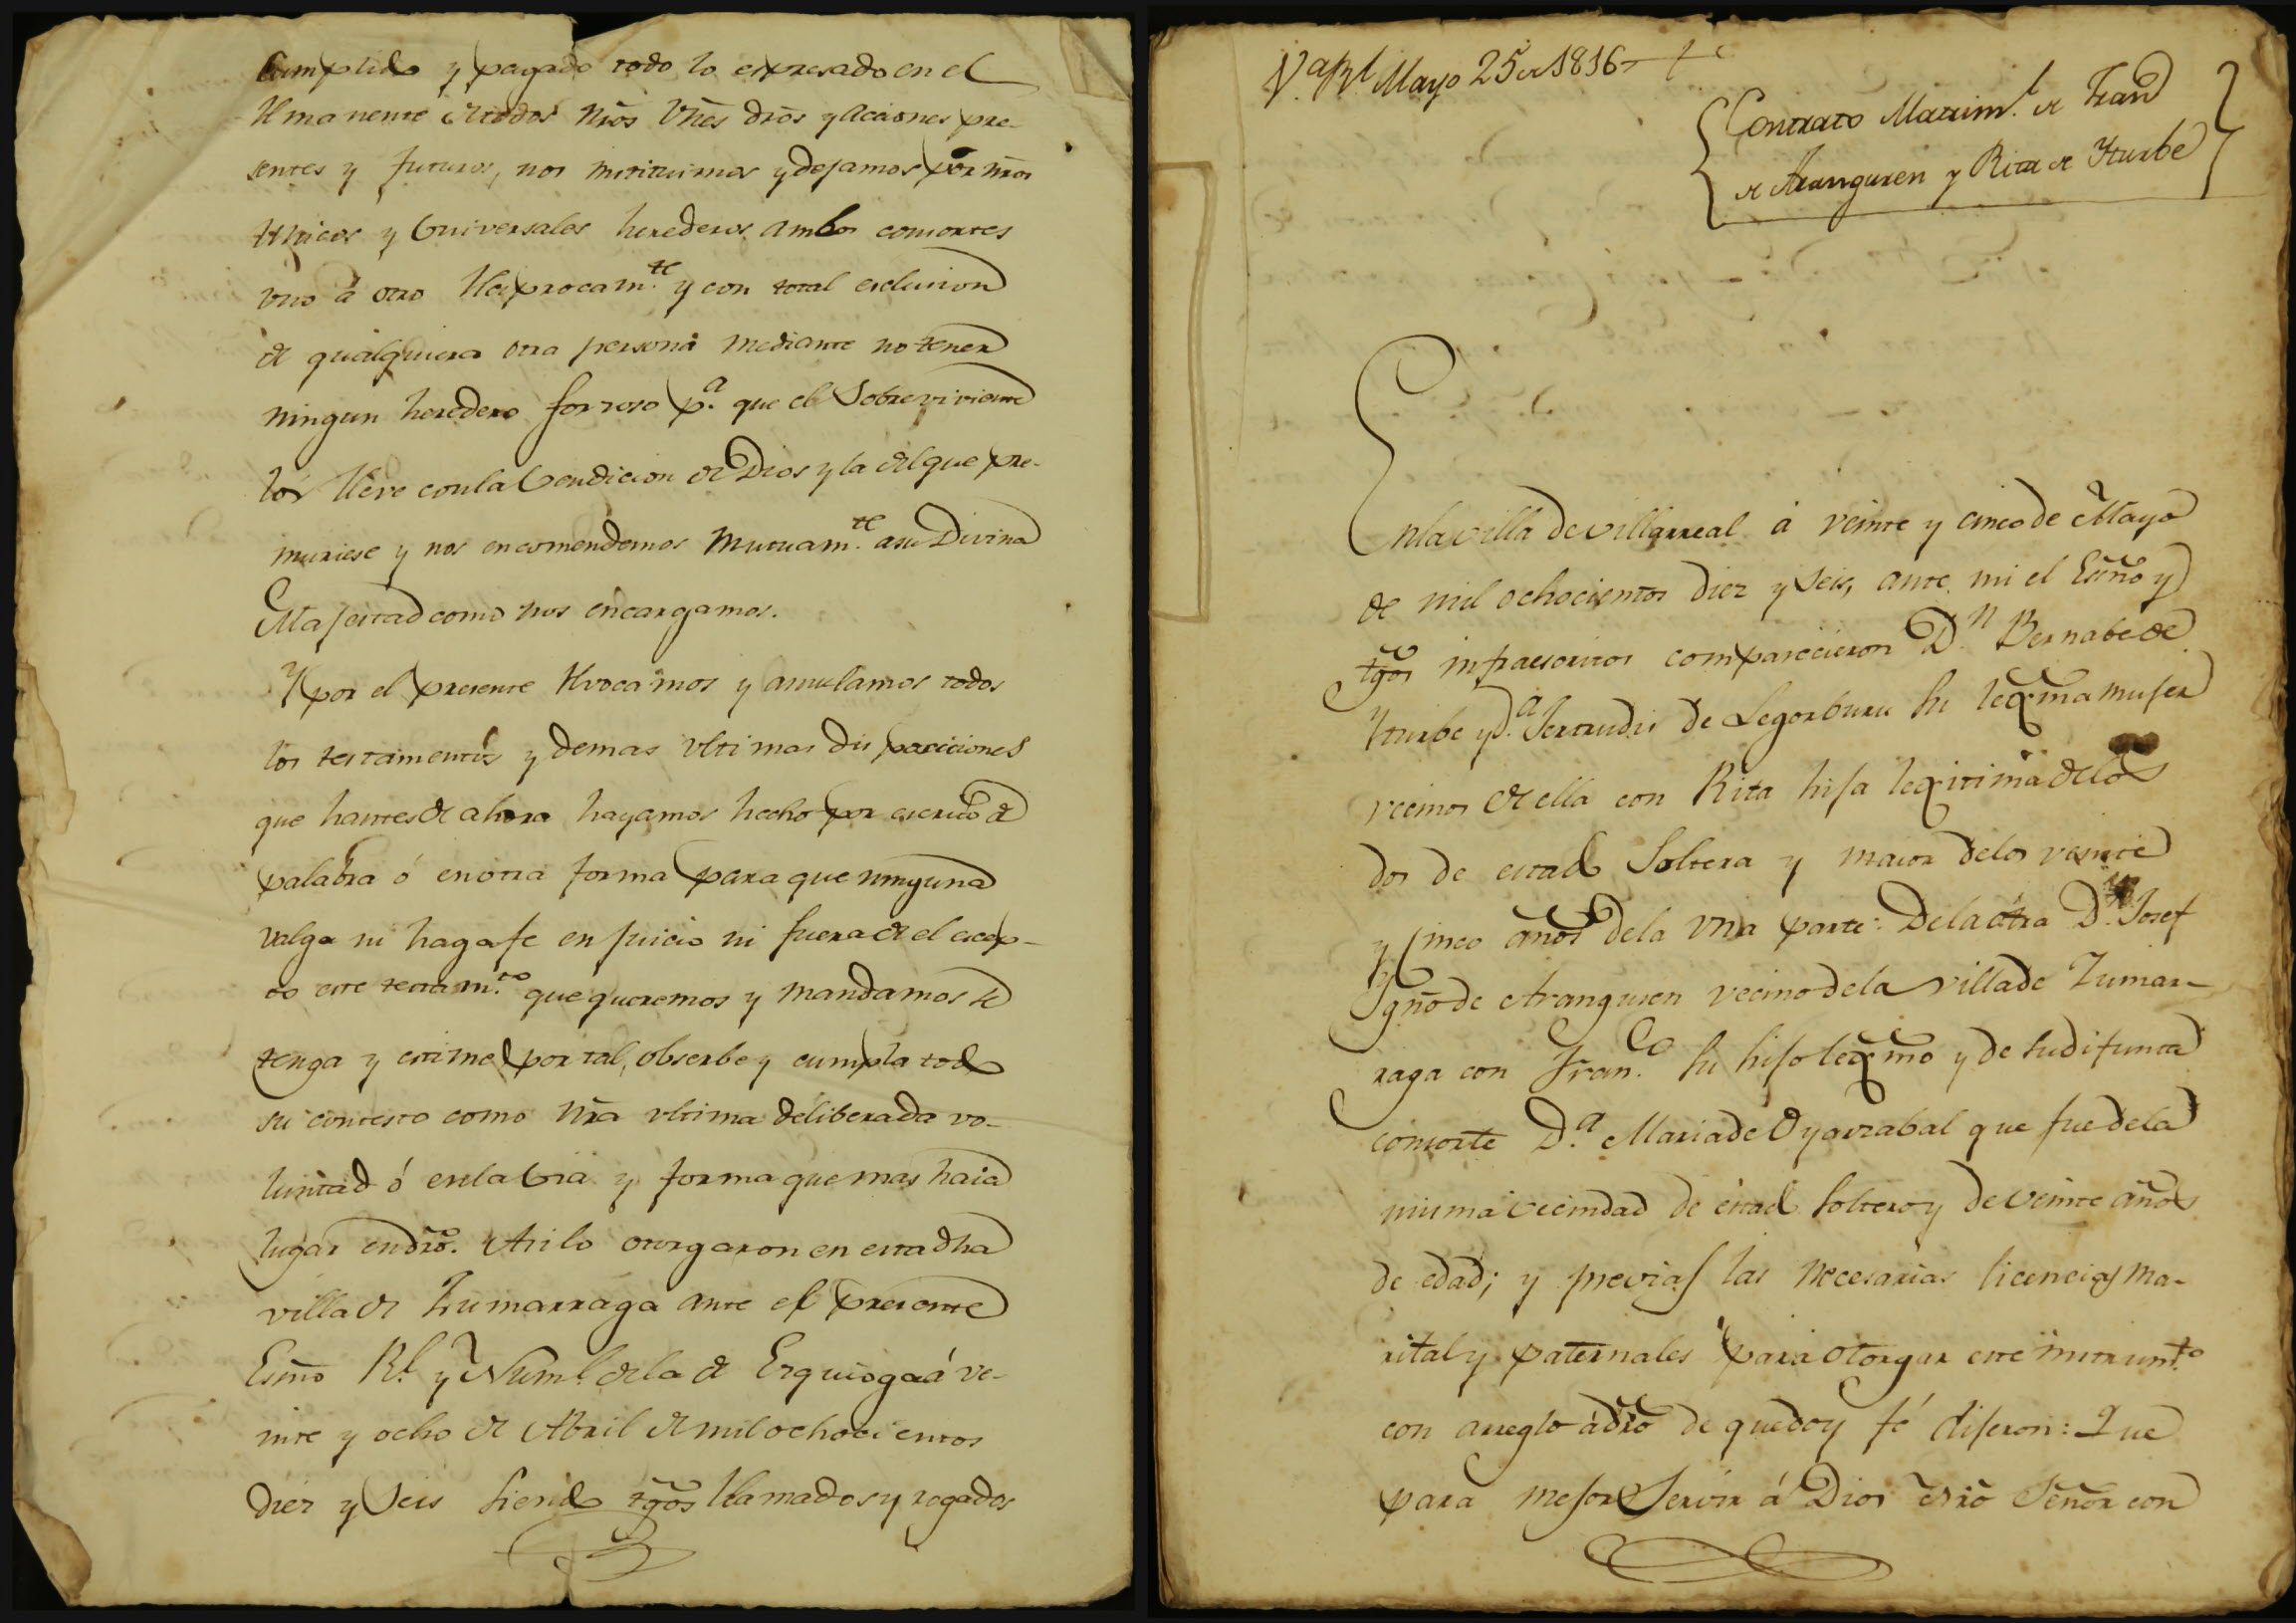 Cumplido y pagado todo lo expresado en el
Remanente de todos nrõs vñes drõs y Aciones pre-
sentes y futuros, nos instituimos y dejamos por nrõs
Unicos y Universales herederos ambos consortes
vno á otro Reciprocam.te y con total esclusion
de qualquiera otra persona mediante no tener
ningun heredero forzoso p.a que el Sobreviviente
los lleve con la Vendicion de Dios y la del que pre-
muriese y nos encomendemos mutuam.te a su Divina
Majestad como nos encargamos.
Y por el presente Rvocamos y anulamos todos
los testamentos y demas vltimas disposiciones
que hantes de ahora hayamos hecho por escrito de
palabra ó en otra forma para que ninguna
valga ni haga fe en Juicio ni fuera de el excep-
to este testam.to que queremos y mandamos se
tenga y estime por tal, obserbe y cumpla todo
su contesto como nrã vltima deliberada vo-
luntad ó en la Via y forma que mas haia
lugar en drõ. Asi lo otorgaron en esta dha
villa de Zumarraga ante el presente
Esnõ R.l y Num.l de la de Ezquioga á ve-
inte y ocho de Abril de mil ochocientos
diez y Seis Siendo tgõs llamados y rogados
V.a R.l Mayo 25 de 1816
Contrato Matrim.l de Fran.co
de Aranguren y Rita de Yturbe
En la villa de Villarreal á veinte y cinco de Mayo
de mil ochocientos diez y Seis, ante mi el Esnõ y
tgõs infraescritos comparecieron D.n Bernabe de
Yturbe y D.a Jertrudis de Legorburu su legma muger
vecinos de ella con Rita hija legitima de los
dos de estado Soltera y maior de los veinte
y Cinco años de la vna parte: De la otra D.n Josef
Ygnõ de Aranguren vecino de la villa de Zumar-
raga con Fran.co su hijo legmõ y de su difunta
consorte D.a Maria de Oyarzabal que fue de la
misma vecindad de estado Soltero y de veinte años
de edad; y previas las necesarias licencias ma-
rital y paternales para otorgar este instrum.to
con arreglo á drõ de que doy fé dijeron: Que
para mejor Servir á Dios nrõ Señor con